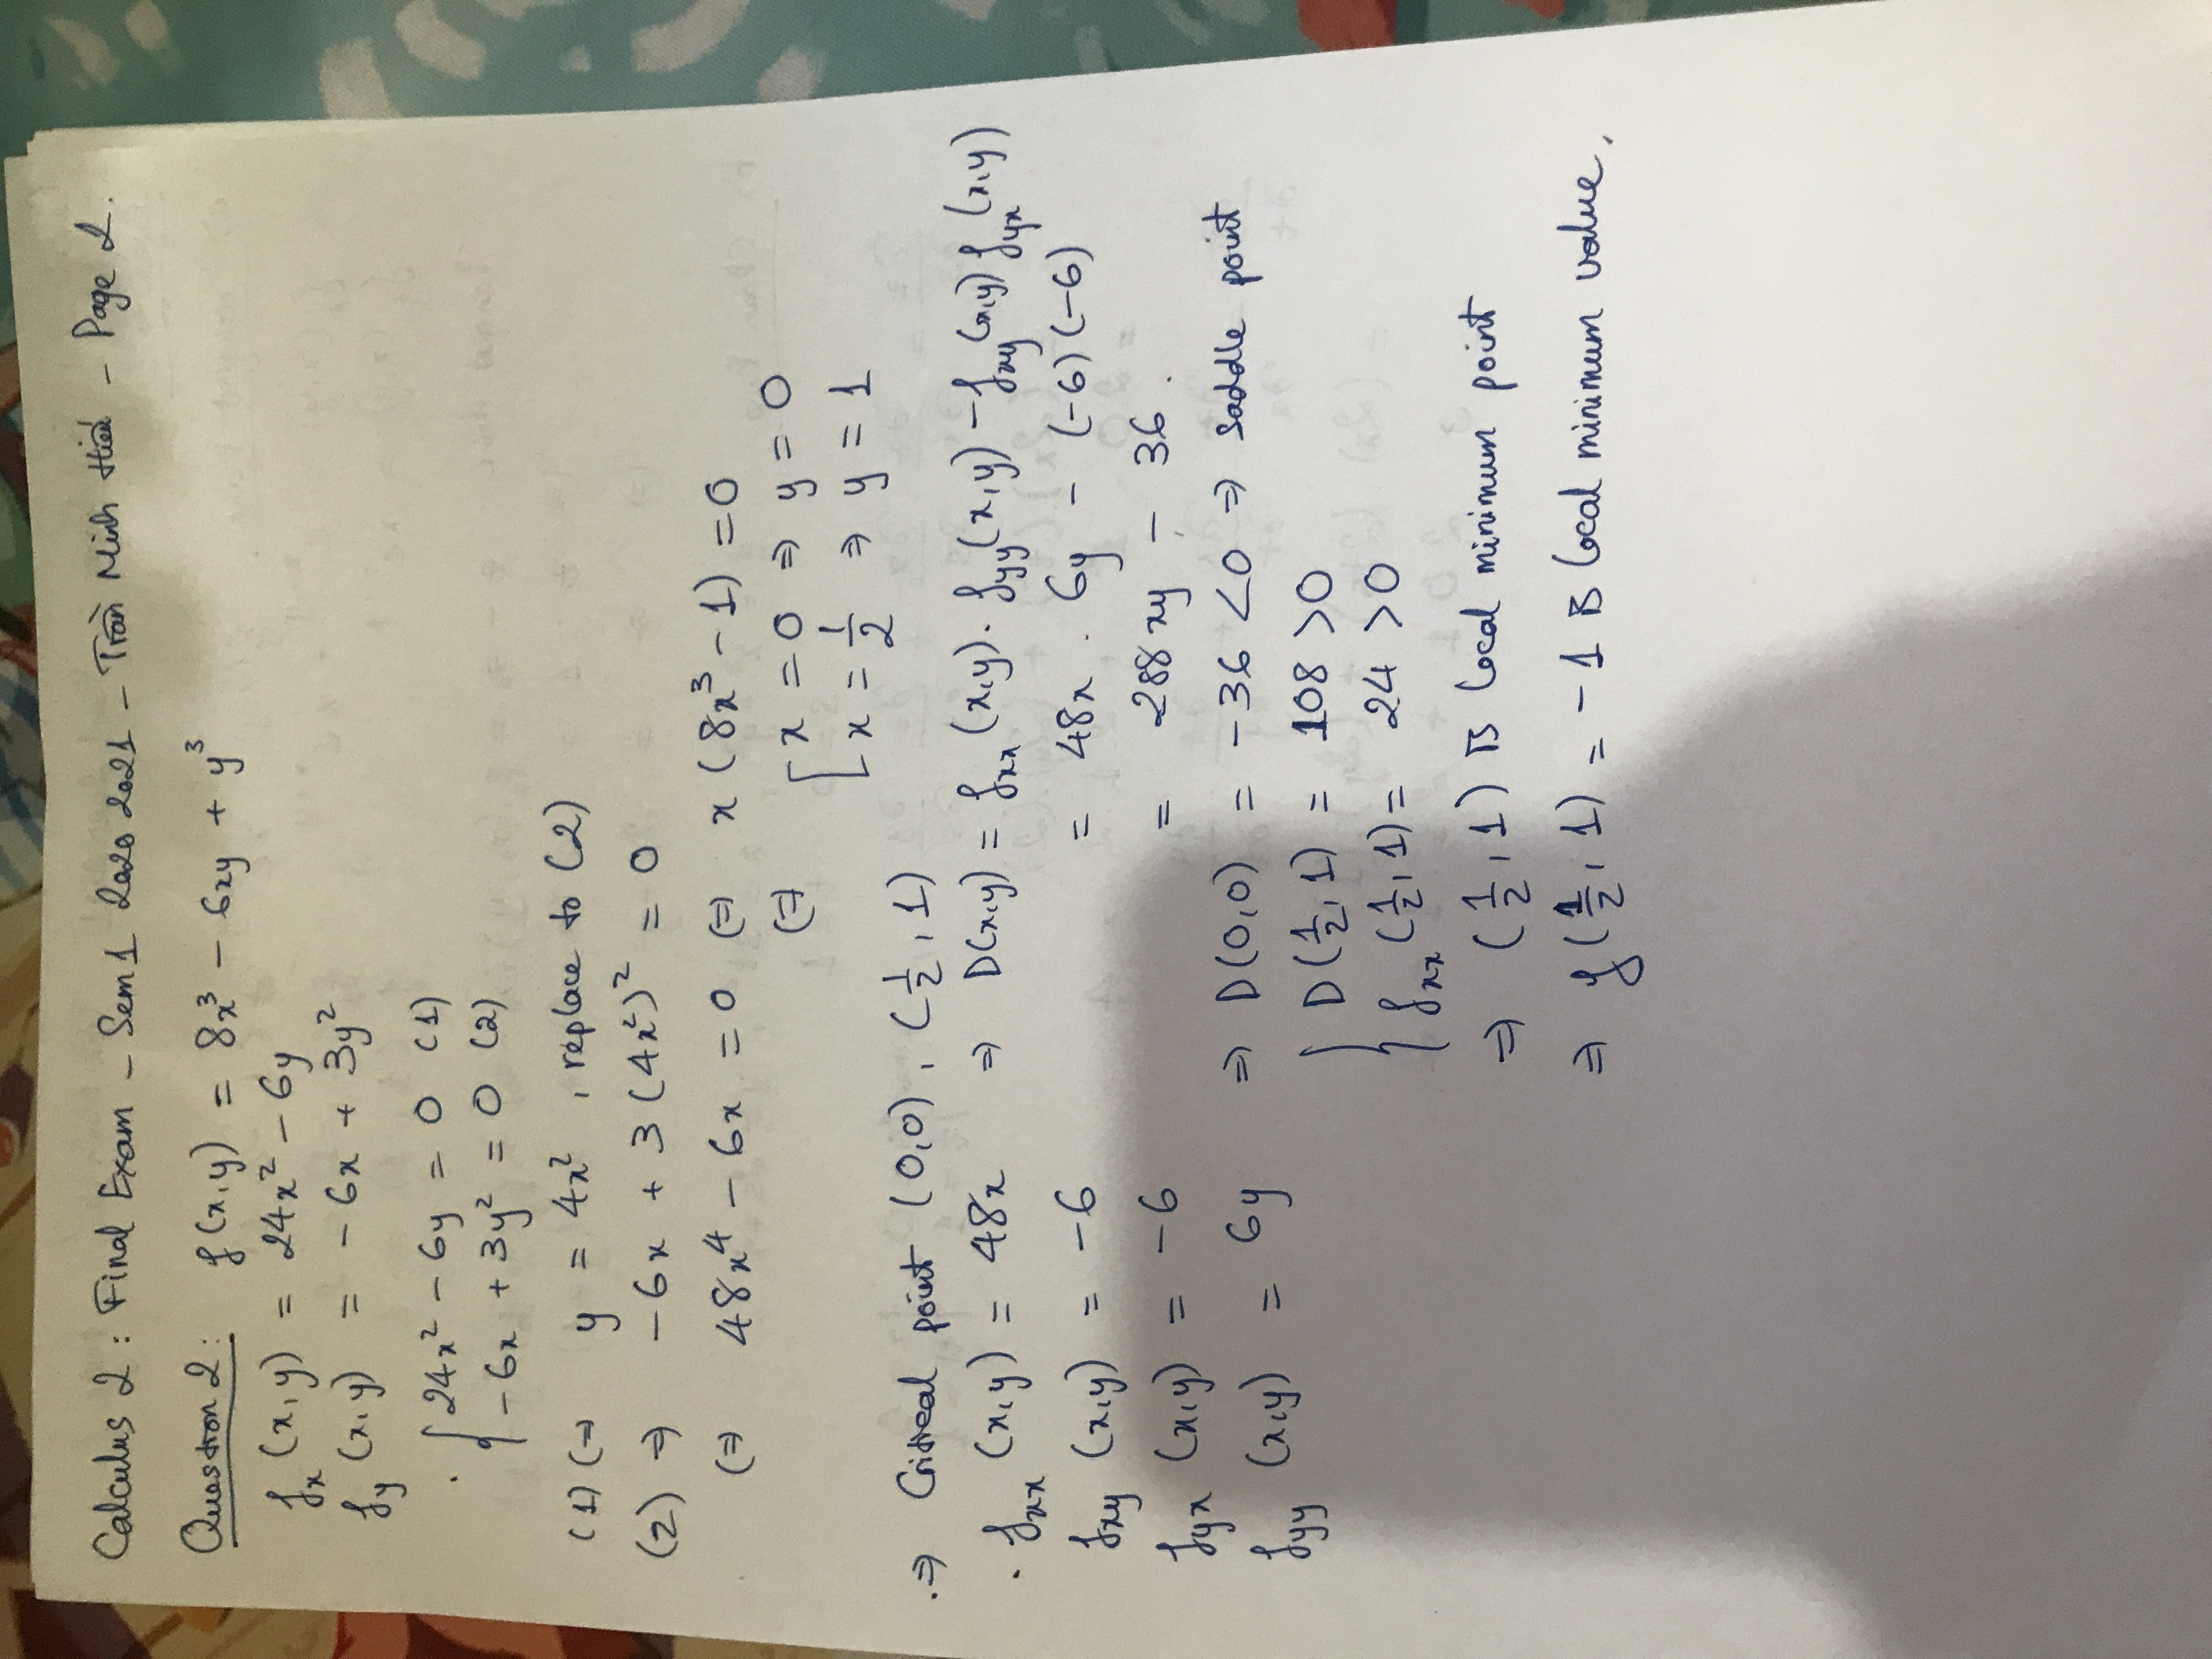 Calculus 2 : Final Exam - Sem 1 2020 2021 - Trần Minh Hiếu - Page 2.
Question 2: f(x,y) = 8x³ - 6xy + y³
fₓ(x,y) = 24x² - 6y
f_y(x,y) = -6x + 3y²
. { 24x² - 6y = 0 (1)
-6x + 3y² = 0 (2)
(1) ⇔ y = 4x², replace to (2)
(2) ⇒ -6x + 3(4x²)² = 0
⇔ 48x⁴ - 6x = 0 ⇔ x(8x³ - 1) = 0
⇔ [ x = 0 ⇒ y = 0
x = 1/2 ⇒ y = 1
. ⇒ Critical point (0,0), (1/2, 1)
. f_xx(x,y) = 48x ⇒ D(x,y) = f_xx(x,y). f_yy(x,y) - f_xy(x,y) f_yx(x,y)
f_xy(x,y) = -6 = 48x . 6y - (-6)(-6)
f_yx(x,y) = -6 = 288xy - 36.
f_yy(x,y) = 6y ⇒ D(0,0) = -36 < 0 ⇒ saddle point
{ D(1/2, 1) = 108 > 0
f_xx(1/2, 1) = 24 > 0
⇒ (1/2, 1) is local minimum point
⇒ f(1/2, 1) = -1 is local minimum value.